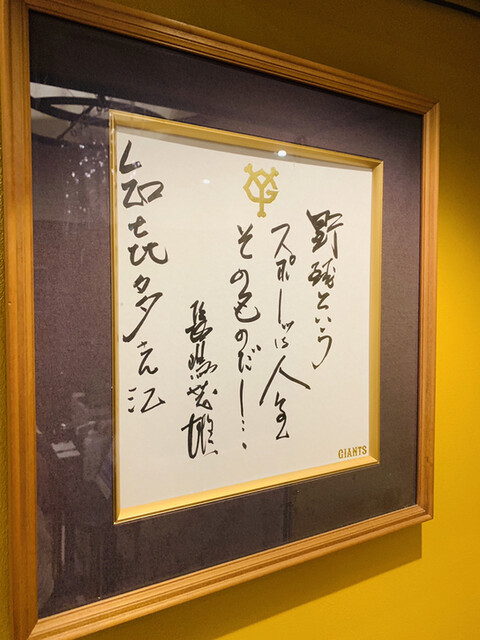 YG
野球という
スポーツは人生
そのものだ―…
長嶋茂雄
知喜多さん江
GIANTS